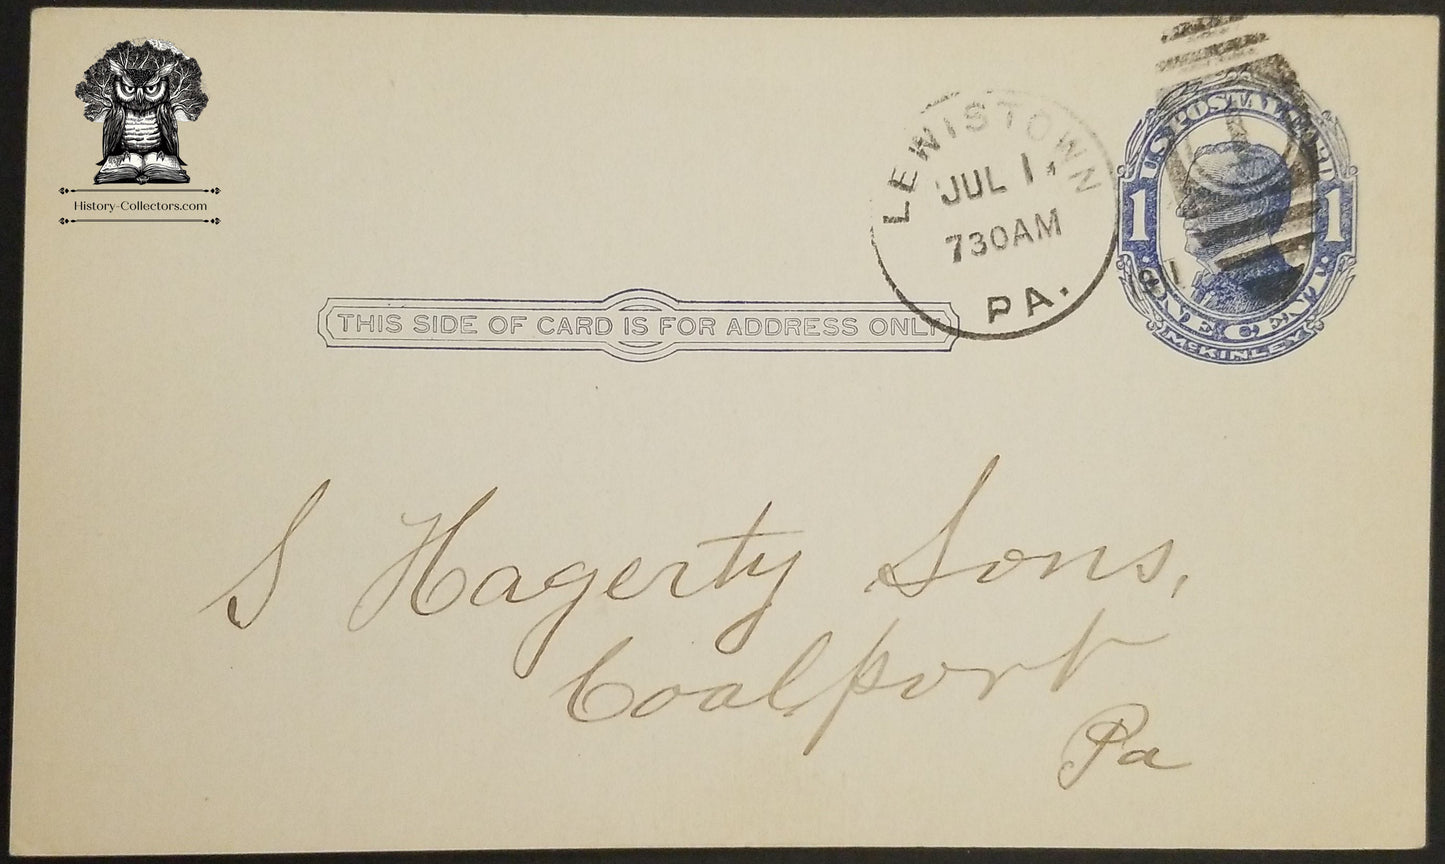 History-Collectors.com
LEWISTOWN
JUL 1,
730AM
PA.
U.S. POSTAL CARD
1 1
ONE CENT
McKINLEY
THIS SIDE OF CARD IS FOR ADDRESS ONLY
S Hagerty Sons,
Coalport
Pa